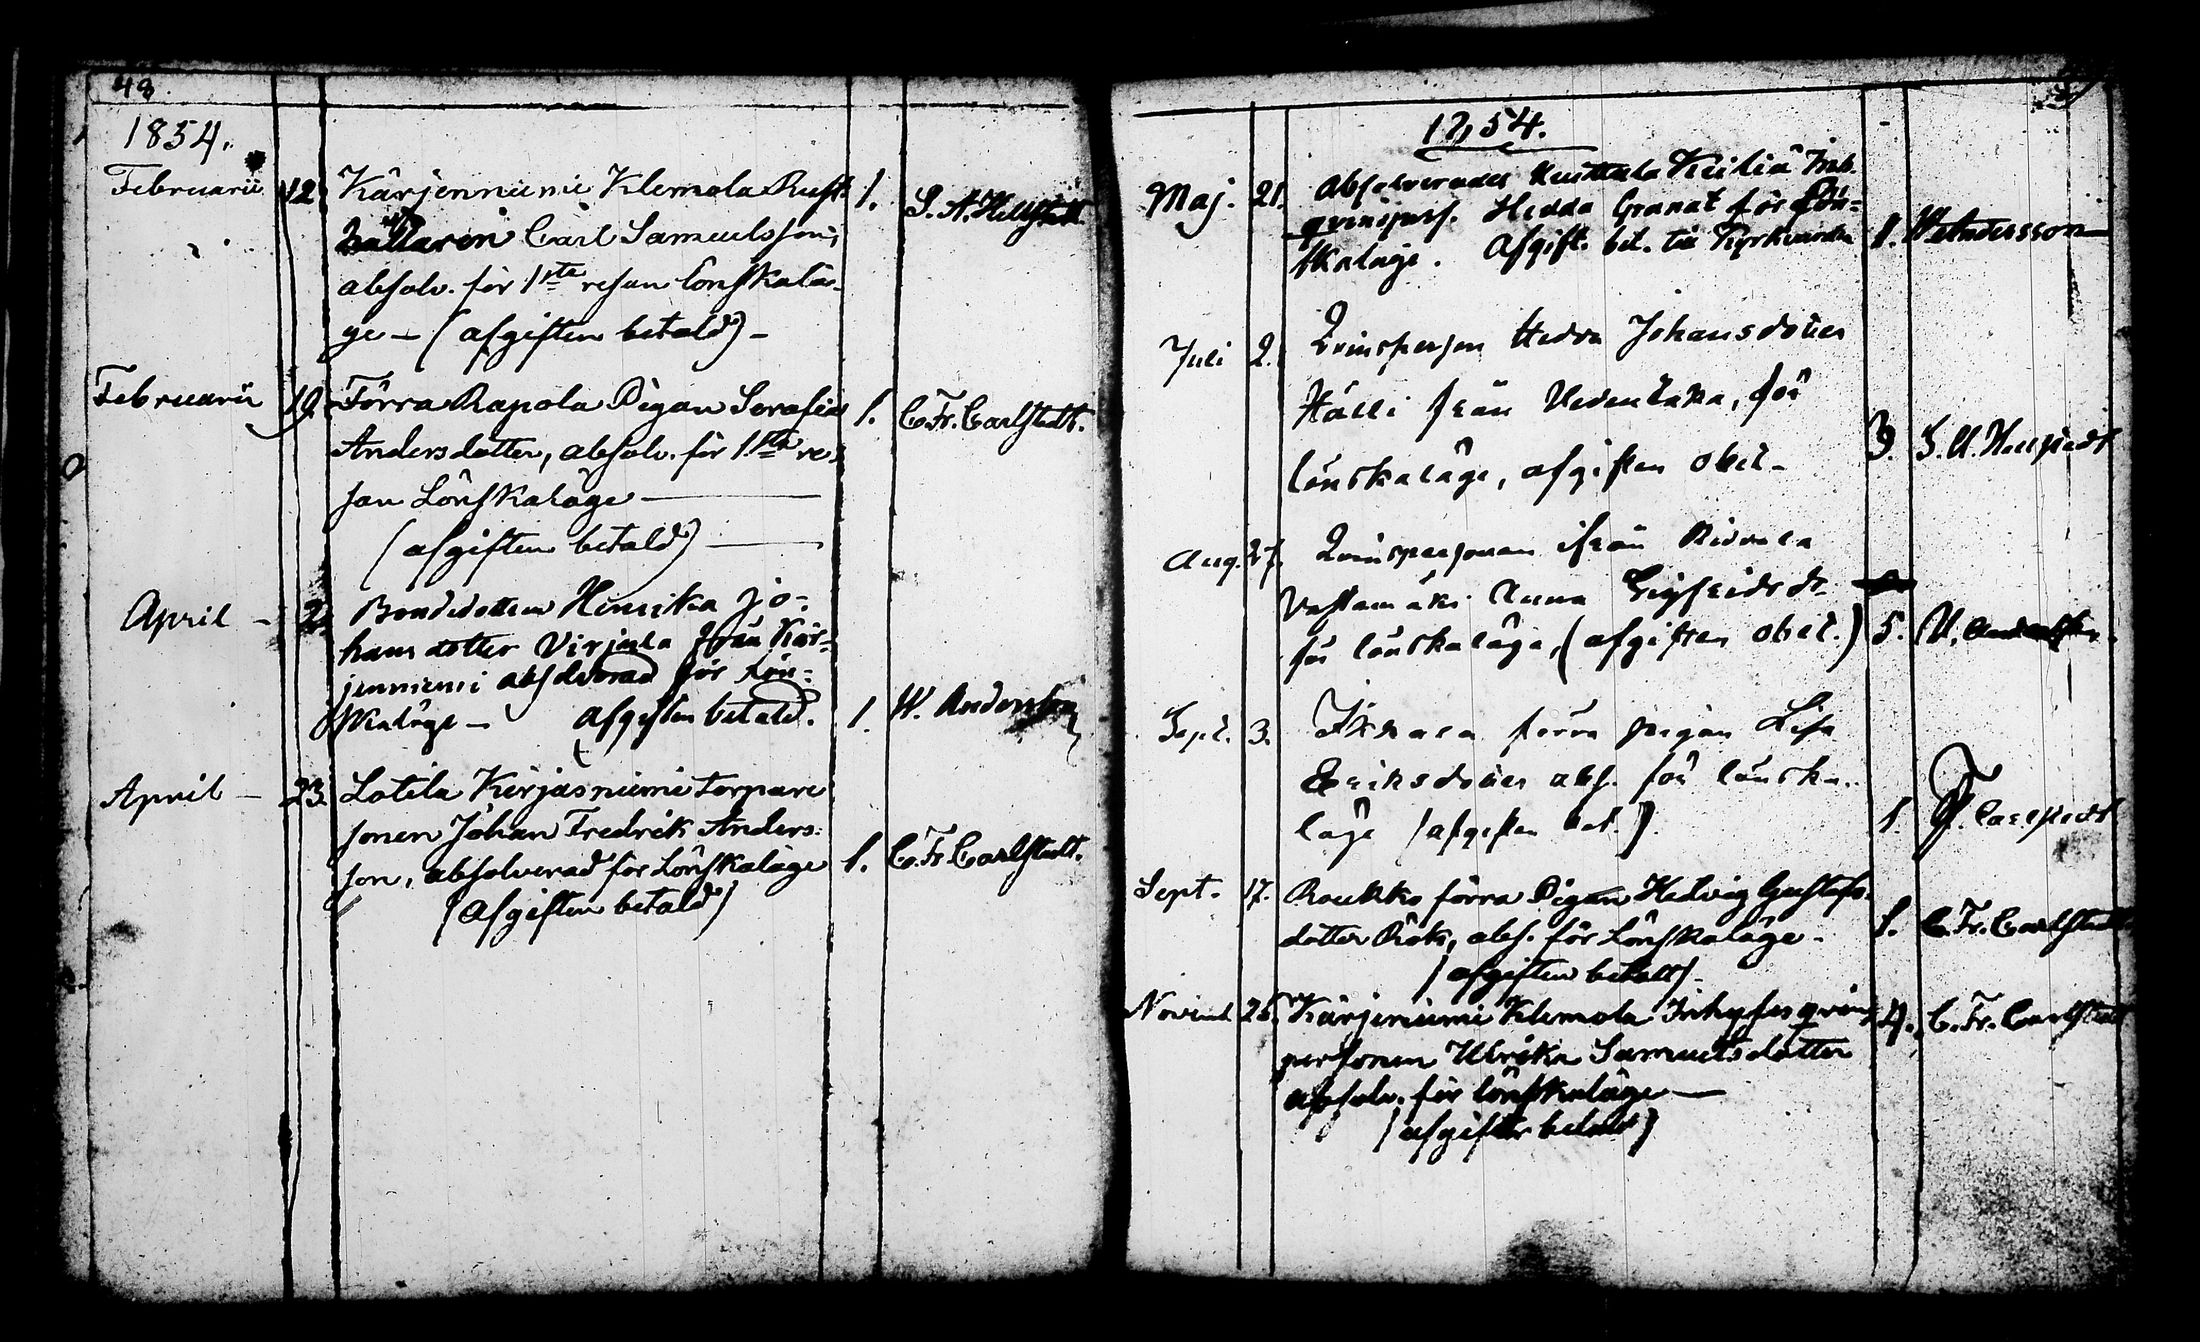 48.
1854.
Februarii 12 Kärjenniemi Klemola Rust- 1. S. A. Hellstedt
hållaren Carl Samuelsson,
absolv. för 1sta resan Lönskalä-
ge – (afgiften betald) –
Februarii 19. Förra Rapola Pigan Serafia 1. C. Fr. Carlstedt.
Andersdotter, absolv. för 1sta re-
san Lönskaläge —
(afgiften betald) —
April – 2. Bondedottren Henrika Jo-
hansdotter Virjula från Kär-
jenniemi absolverad för Lön-
skaläge – afgiften betald. 1. W. Andersson
April – 23. Lotila Kerjasniemi torpare
sonen Johan Fredrik Anders-
son, absolverad för Lönskaläge 1. C. Fr. Carlstedt.
(Afgiften betald)
1854.
Maj. 21. Absolverades Inh.
qvinspers. Hedda Granat för Lön-
skaläge. Afgift. bet. till Kyrkvärden 1. W Andersson
Juli 2. Qvinsperson Hedda Johansdotter
Hälli från Vedentaka, för
lönskaläge, afgiften obet- 3. S. A. Hellstedt
Aug. 27. Qvinspersonen ifrån Ridvala
Vastamäki Anna Sigfridsdr
för lönskaläge, (afgiften obet.) 5. W. Andersson
Sept. 3. Ikkala förra pigan Lisa
Eriksdotter abs. för lönska-
läge (afgiften bet.) 1. Fr. Carlstedt
Sept. 17. Roukko förra Pigan Hedvig Gustafs-
dotter Rök, abs. för Lönskaläge – 1. C. Fr. Carlstedt
(afgiften betalt) –
Novemb 26. Kärjeniemi Klemola Inhyses qvins 4. C. Fr. Carlstedt
personen Ulrika Samuelsdotter
absolv. för lönskaläge —
(afgiften betald)